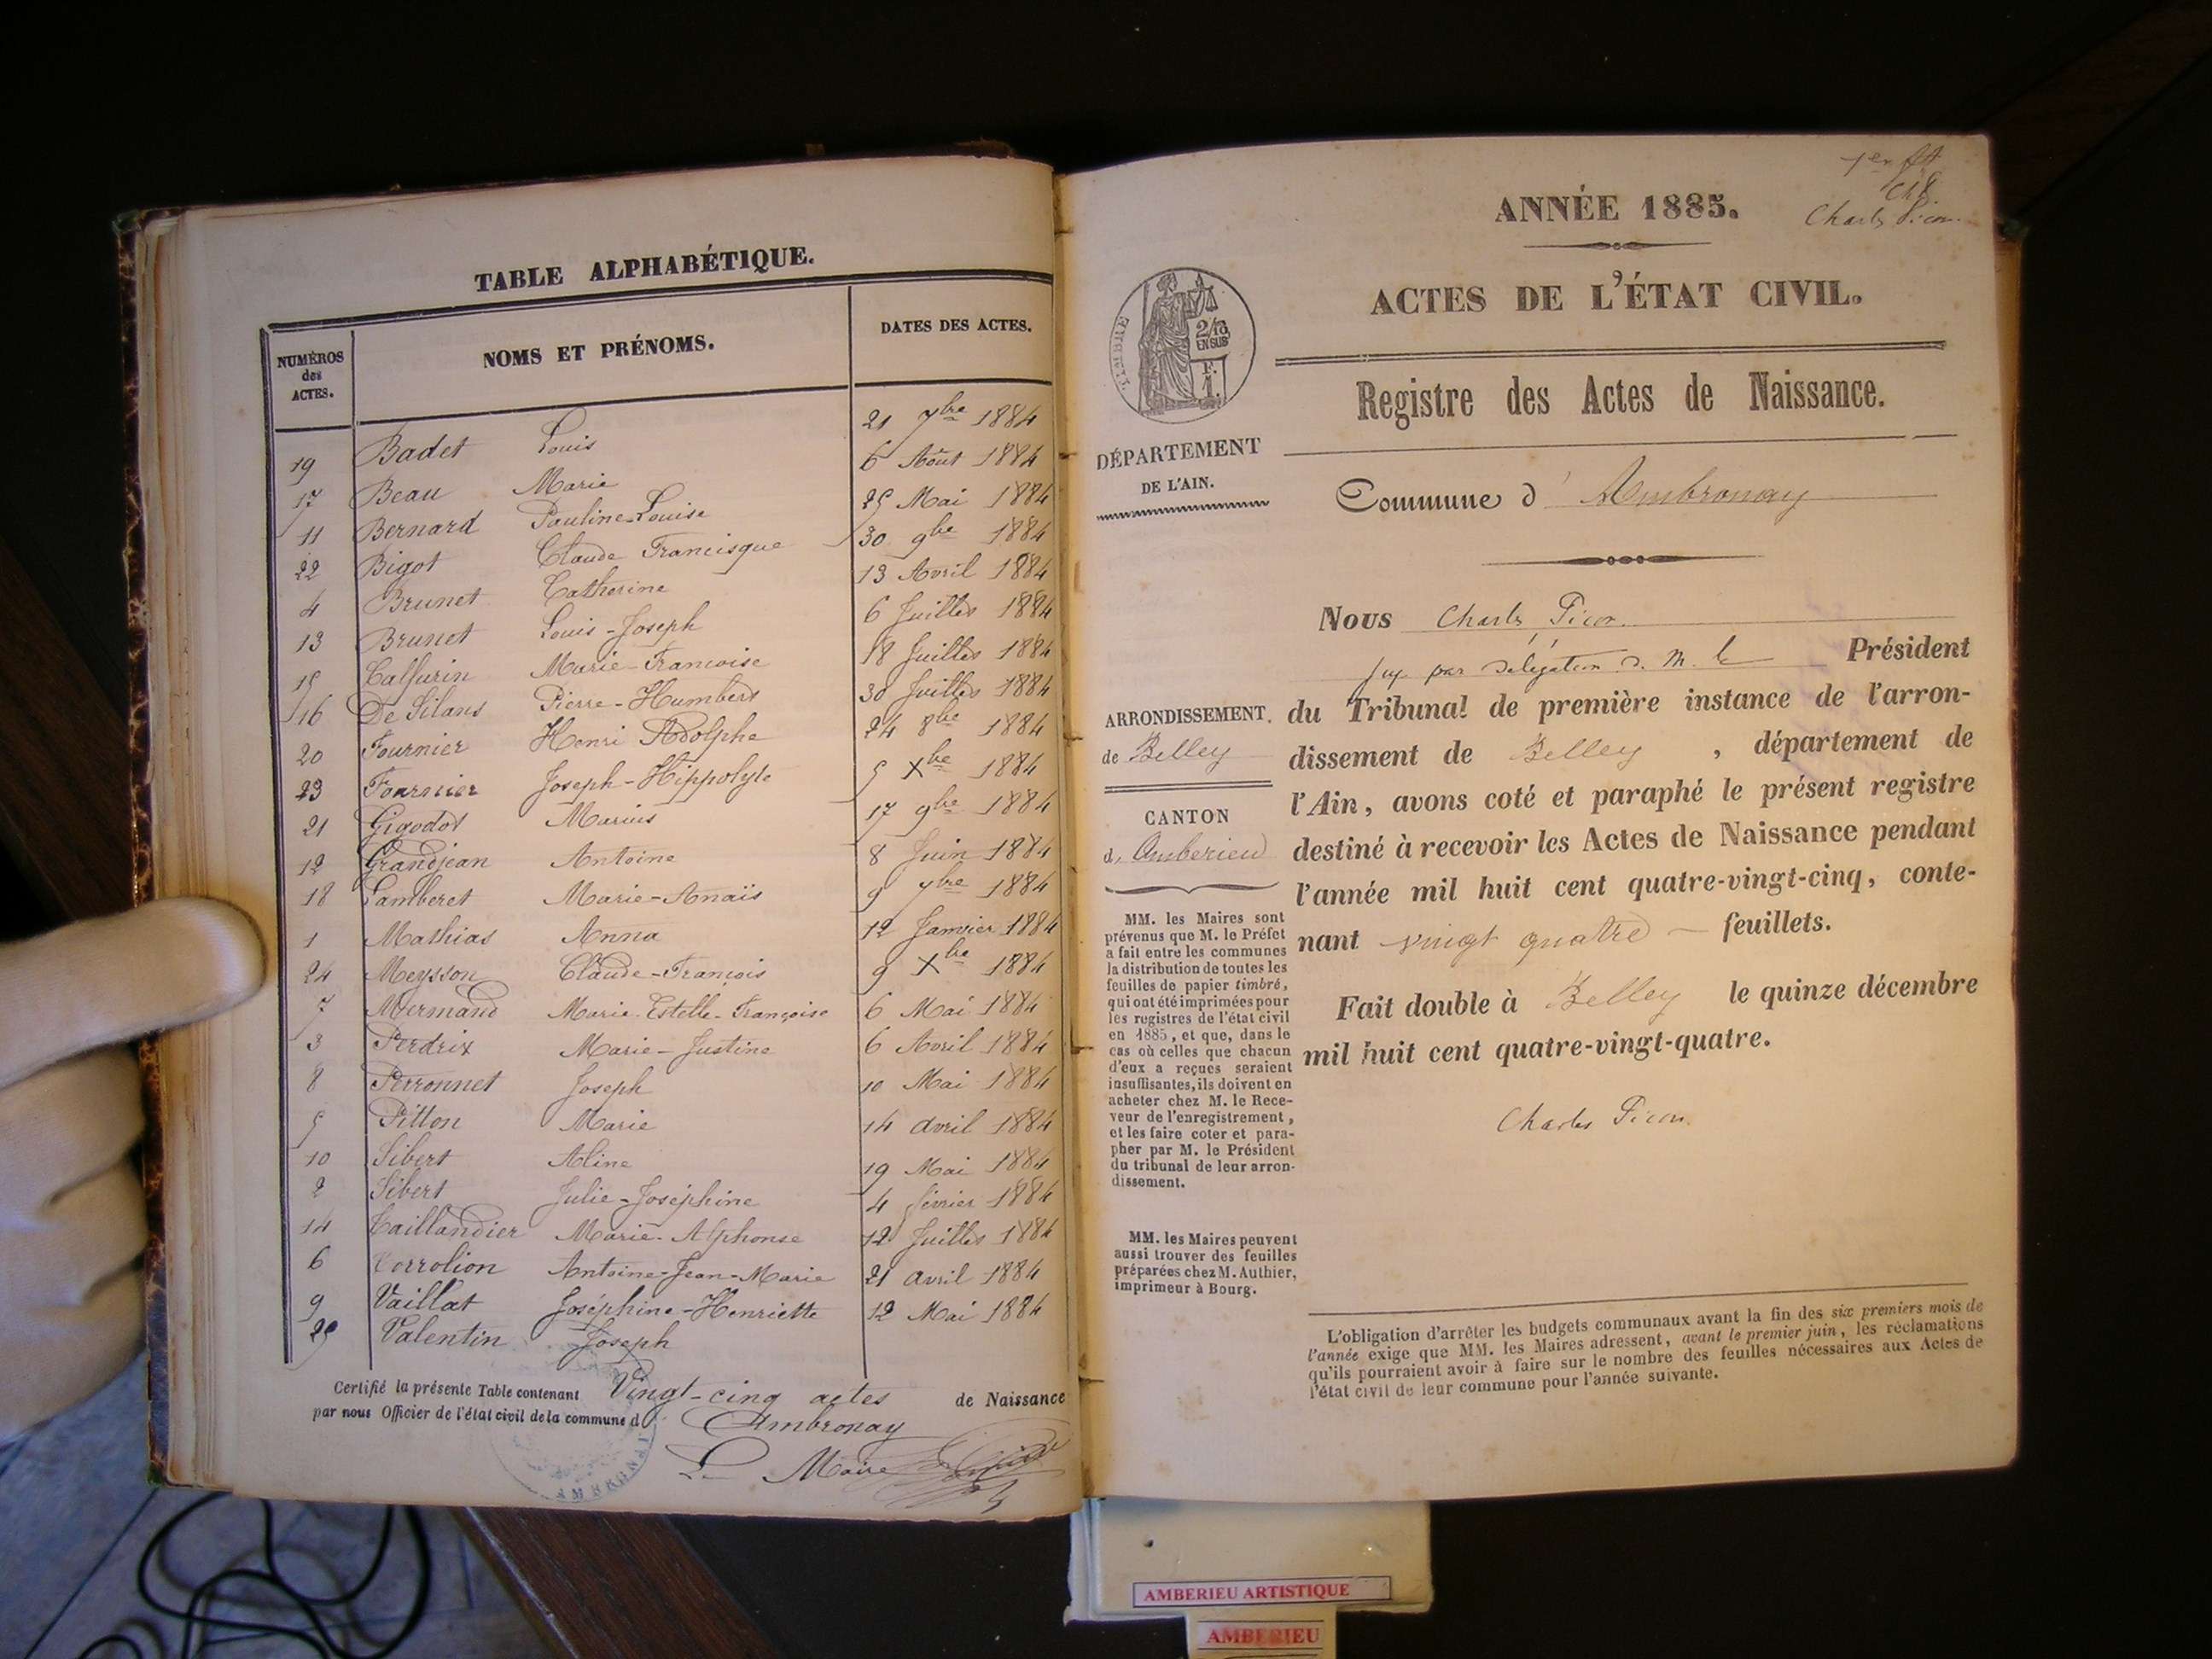 TABLE ALPHABÉTIQUE.
NUMÉROS des ACTES.
NOMS ET PRÉNOMS.
DATES DES ACTES.
19 Badet Louis 21 7bre 1884
17 Beau Marie 6 Août 1884
11 Bernard Pauline-Louise 25 Mai 1884
22 Bigot Claude Francisque 30 9bre 1884
4 Brunet Catherine 13 Avril 1884
13 Brunet Louis-Joseph 6 Juillet 1884
15 Calfurin Marie-Francoise 18 Juillet 1884
16 De Silans Pierre-Humbert 30 Juillet 1884
20 Fournier Henri Adolphe 24 8bre 1884
23 Fournier Joseph-Hippolyte 5 Xbre 1884
21 Gigodot Marius 17 9bre 1884
12 Grandjean Antoine 8 Juin 1884
18 Lamberet Marie-Anaïs 9 7bre 1884
1 Mathias Anna 12 Janvier 1884
24 Meysson Claude-François 9 Xbre 1884
7 Mermand Marie-Estelle-Françoise 6 Mai 1884
3 Perdrix Marie-Justine 6 Avril 1884
8 Perronnet Joseph 10 Mai 1884
5 Pitton Marie 14 avril 1884
10 Sibert Aline 19 Mai 1884
2 Sibert Julie-Joséphine 4 février 1884
14 Taillandier Marie-Alphonse 12 Juillet 1884
6 Torrolion Antoine-Jean-Marie 21 avril 1884
9 Vaillat Joséphine-Henriette 12 Mai 1884
25 Valentin Joseph
Certifié la présente Table contenant Vingt-cinq actes de Naissance
par nous Officier de l'état civil de la commune d' Ambronay
Le Maire
1er ft
Charles Picon
ANNÉE 1885.
ACTES DE L'ÉTAT CIVIL.
TIMBRE
2/10
EN SUS
F.
1.
Registre des Actes de Naissance.
DÉPARTEMENT
DE L'AIN.
Commune d' Ambronay
Nous Charles Picon
Juge par délégation de M. le Président
du Tribunal de première instance de l'arron-
dissement de Belley, département de
l'Ain, avons coté et paraphé le présent registre
destiné à recevoir les Actes de Naissance pendant
l'année mil huit cent quatre-vingt-cinq, conte-
nant vingt quatre feuillets.
Fait double à Belley le quinze décembre
mil huit cent quatre-vingt-quatre.
Charles Picon
ARRONDISSEMENT.
de Belley
CANTON
d'Ambérieu
MM. les Maires sont
prévenus que M. le Préfet
a fait entre les communes
la distribution de toutes les
feuilles de papier timbré,
qui ont été imprimées pour
les registres de l'état civil
en 1885, et que, dans le
cas où celles que chacun
d'eux a reçues seraient
insuffisantes, ils doivent en
acheter chez M. le Rece-
veur de l'enregistrement,
et les faire coter et para-
pher par M. le Président
du tribunal de leur arron-
dissement.
MM. les Maires peuvent
aussi trouver des feuilles
préparées chez M. Authier,
imprimeur à Bourg.
L'obligation d'arrêter les budgets communaux avant la fin des six premiers mois de
l'année exige que MM. les Maires adressent, avant le premier juin, les réclamations
qu'ils pourraient avoir à faire sur le nombre des feuilles nécessaires aux Actes de
l'état civil de leur commune pour l'année suivante.
AMBERIEU ARTISTIQUE
AMBERIEU